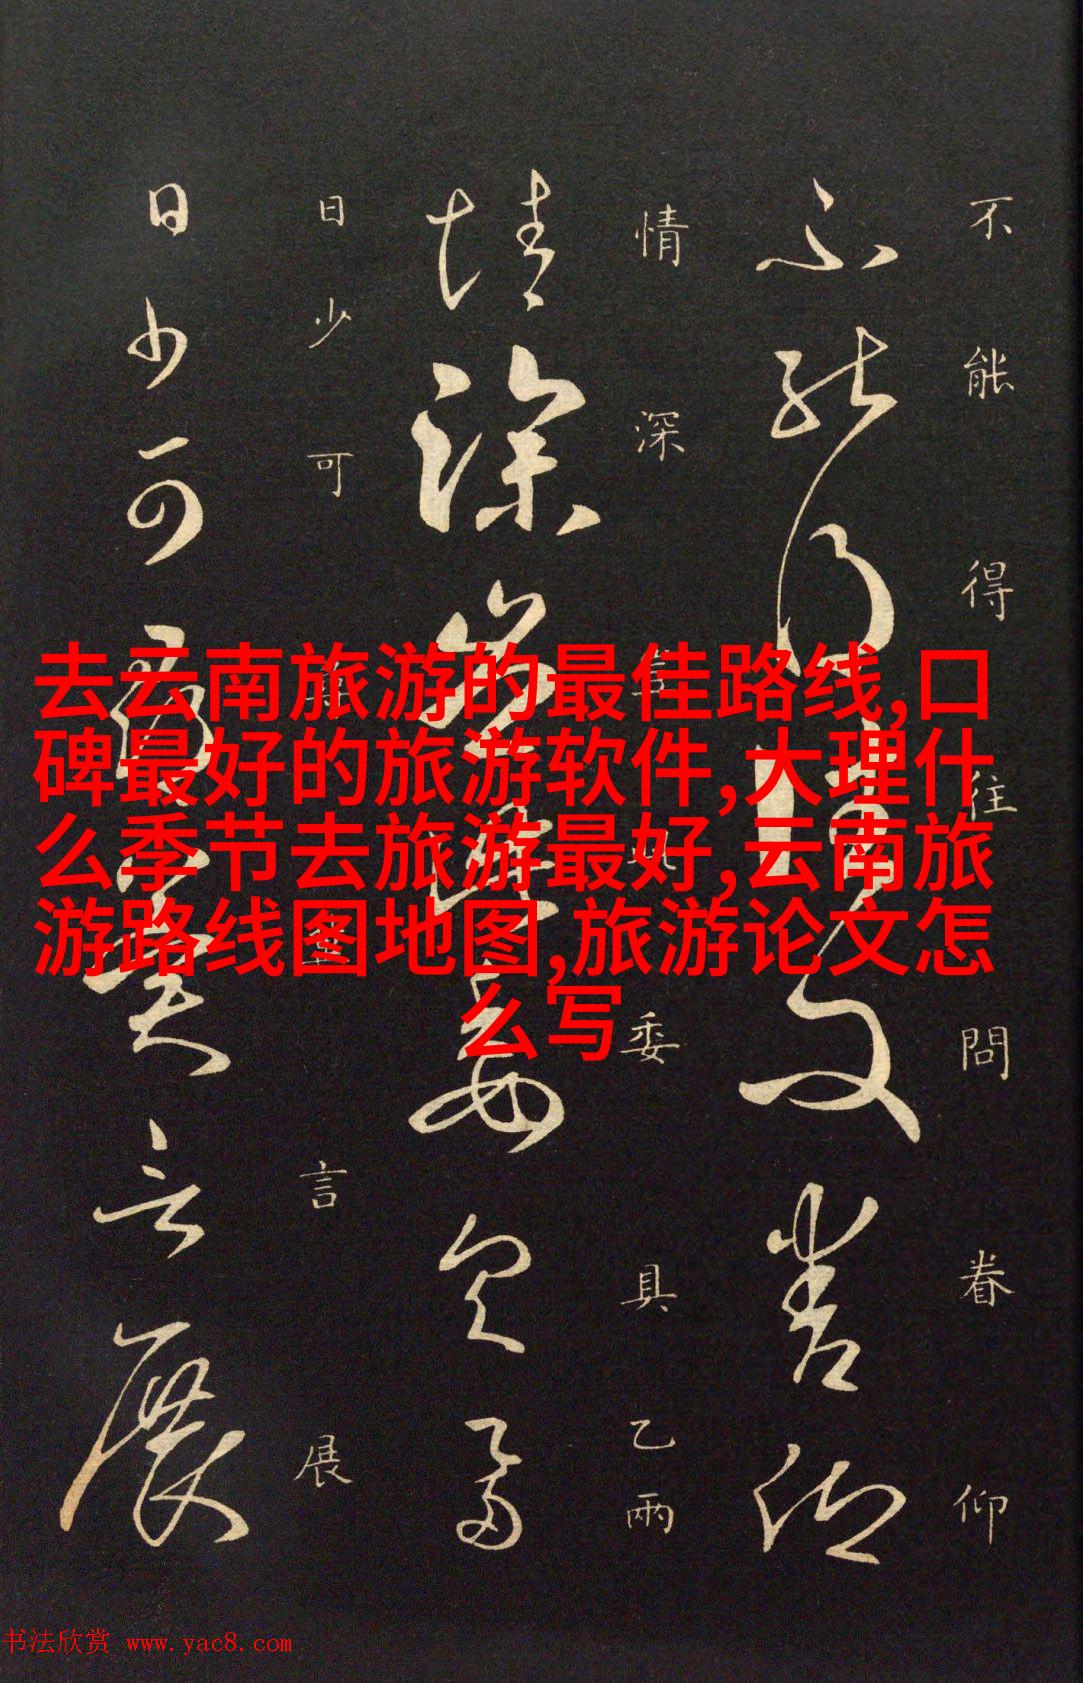 不能得往問眷仰
不能得往問眷仰
情深委具乙兩
情深委具乙兩
日少可言展
日少可言展
去云南旅游的最佳路线,口
碑最好的旅游软件,大理什
么季节去旅游最好,云南旅
游路线图地图,旅游论文怎
么写
书法欣赏 www.yac8.com